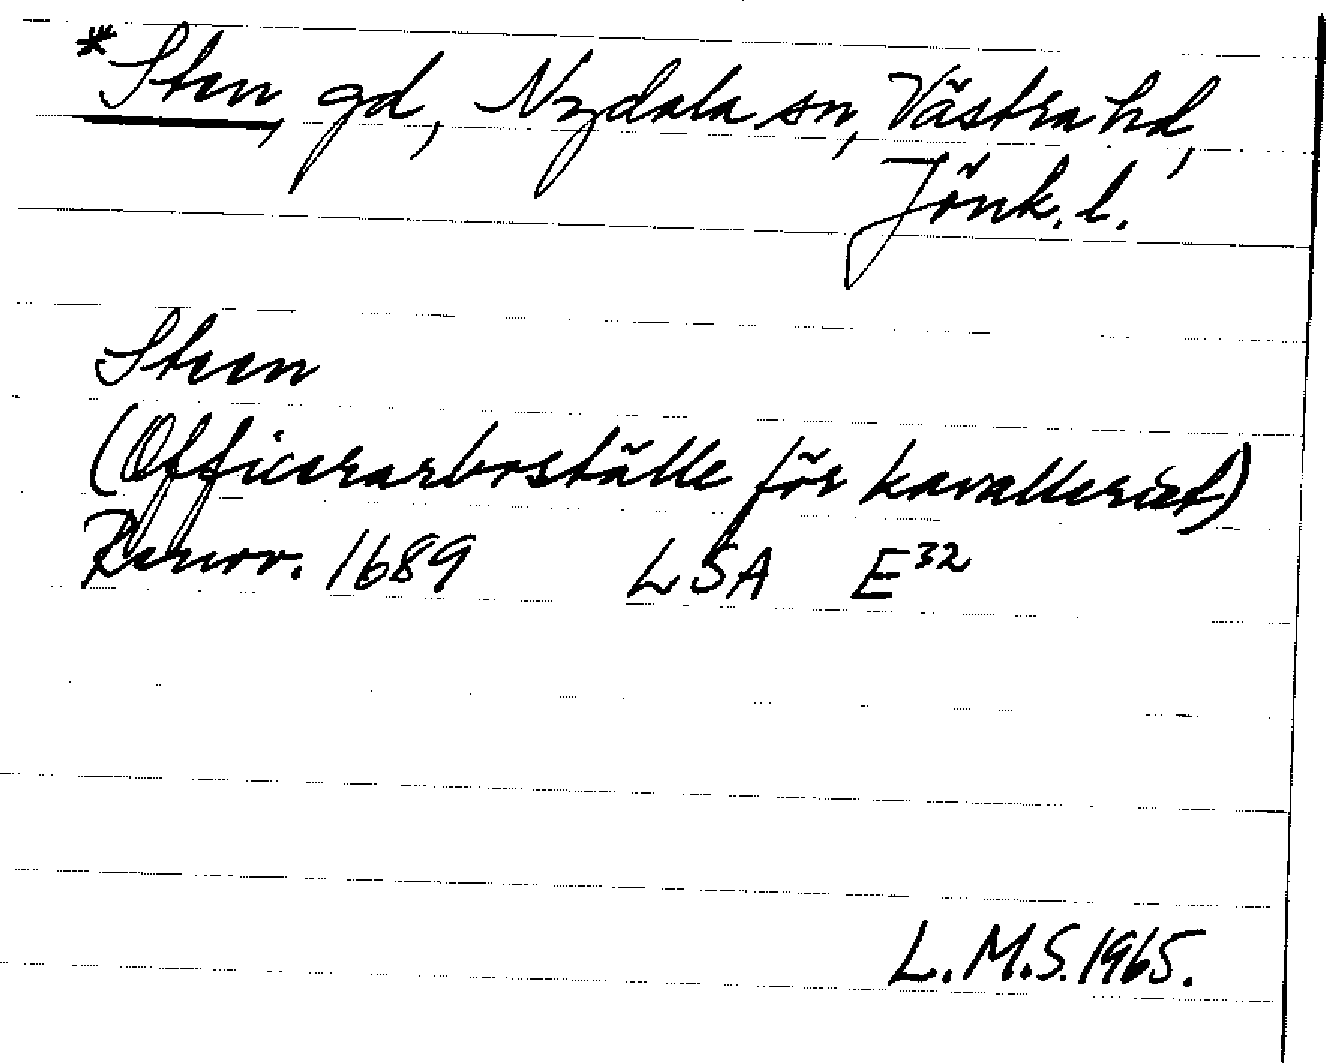 *Sten, gd, Nydala sn, Västra hd,
Jönk. l.
Steen
(Officerarboställe för kavalleriet)
Renov. 1689 LSA E³²
L.M.S. 1965.